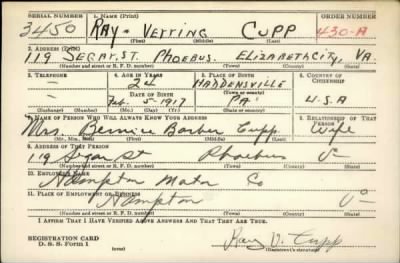 SERIAL NUMBER 1. NAME (Print) ORDER NUMBER
3450 RAY - VETTING CUPP 430-A
(First) (Middle) (Last)
2. ADDRESS (Print)
119 SEGAR ST PHOEBUS. ELIZABETH CITY VA.
(Number and street or R. F. D. number) (Town) (County) (State)
3. TELEPHONE 4. AGE IN YEARS 5. PLACE OF BIRTH 6. COUNTRY OF CITIZENSHIP
— 24 HARDENSVILLE
(Town or county)
DATE OF BIRTH
— Feb. 5-1917 PA. U.S.A
(Exchange) (Number) (Mo.) (Day) (Yr.) (State or country)
7. NAME OF PERSON WHO WILL ALWAYS KNOW YOUR ADDRESS 8. RELATIONSHIP OF THAT PERSON
Mrs. Bernice Barber Cupp Wife
(Mr., Mrs., Miss) (First) (Middle) (Last)
9. ADDRESS OF THAT PERSON
119 Segar St Phoebus Va
(Number and street or R. F. D. number) (Town) (County) (State)
10. EMPLOYER'S NAME
Hampton Motor Co
11. PLACE OF EMPLOYMENT OR BUSINESS
Hampton Va
(Number and street or R. F. D. number) (Town) (County) (State)
I AFFIRM THAT I HAVE VERIFIED ABOVE ANSWERS AND THAT THEY ARE TRUE.
REGISTRATION CARD
D. S. S. FORM 1
Ray V. Cupp
(Registrant's signature)